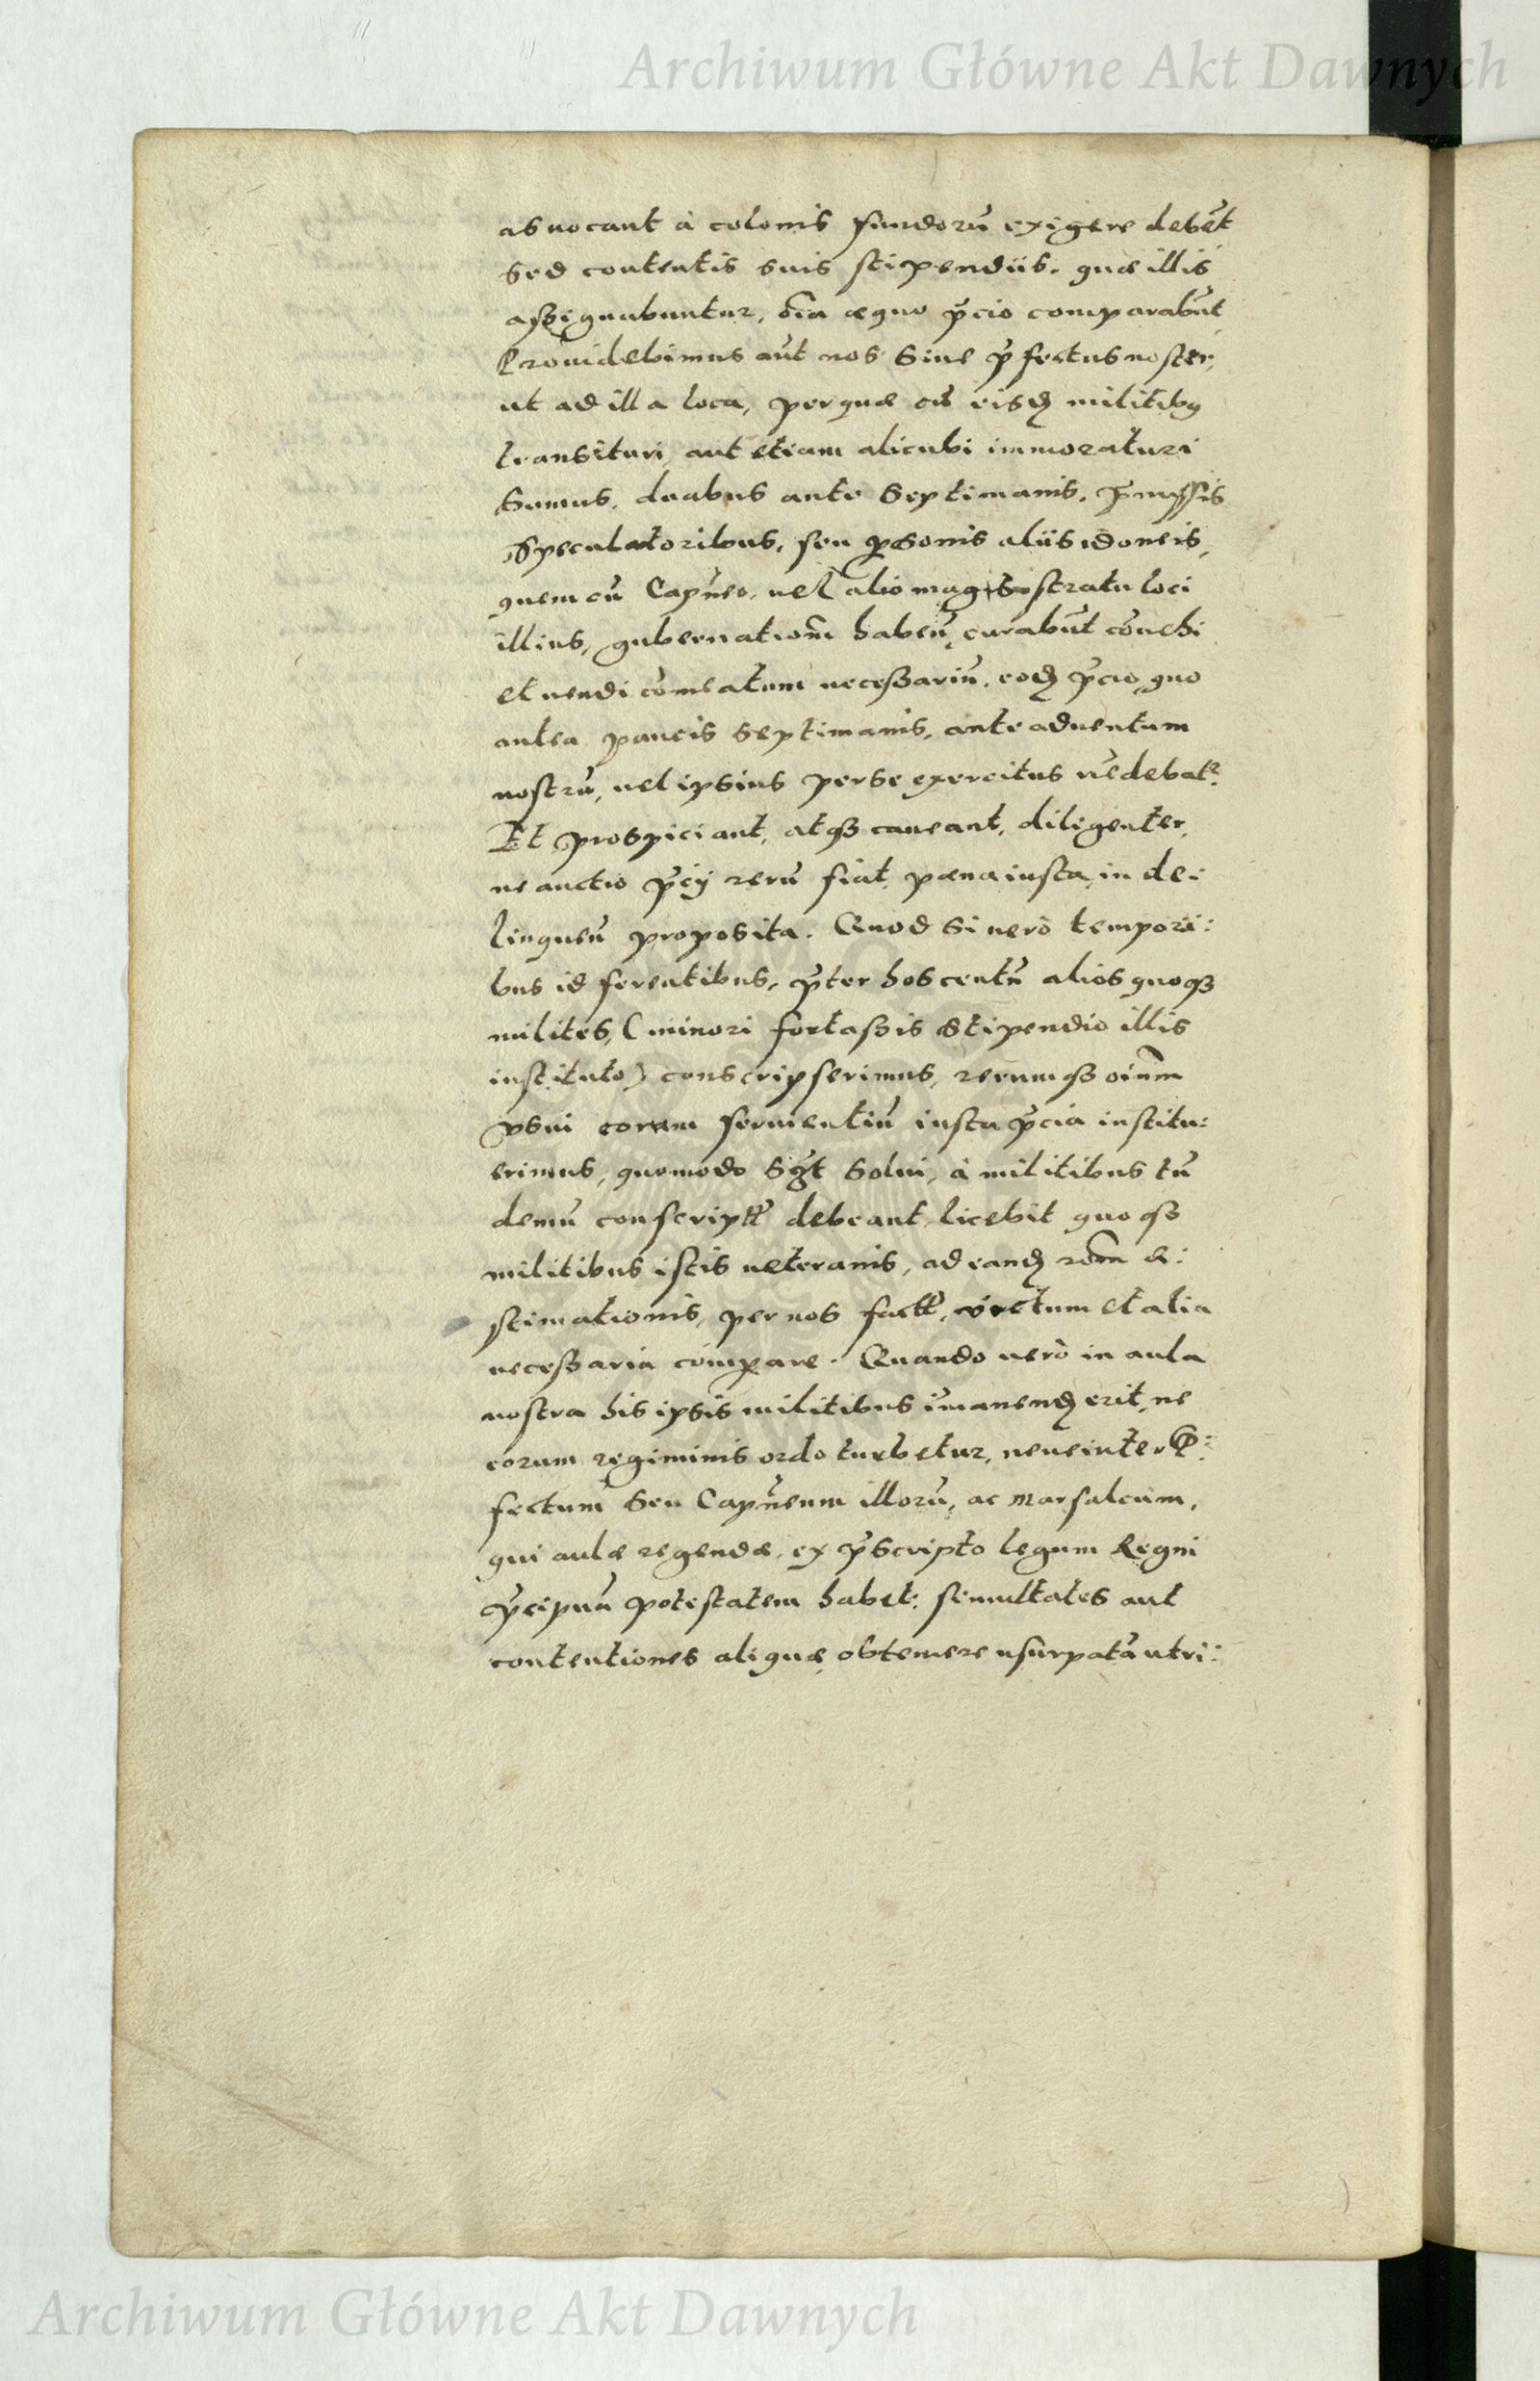 Archiwum Główne Akt Dawnych
as uocant à colonis fundorũ exigere debẽt
Sed contentis suis stipendiis. quæ illis
assignabuntur, õia æquo p̃cio comparabũt
Prouidebimus aũt nos siue p̃fectus noster,
ut ad illa loca, per quæ cũ eisdẽ militibus
transituri, aut etiam alicubi immoraturi
sumus, duabus ante septimanis, p̃missis
speculatoribus, seu p̱sonis aliis idoneis,
quem cũ Capñeo, uel alio magistratu loci
illius, gubernationẽ habeñ, curabũt cõuehi
et uendi cõmeatum necessariũ, eodẽ p̃cio, quo
antea paucis septimanis, ante aduentum
nostrũ, uel ipsius per se exercitus uẽdebatr.
Et prospiciant, atqꝫ caueant, diligenter,
ne auctio p̃cij rerũ fiat, pæna iusta, in de:
linqueñ proposita. Quod si uerò tempori:
bus id ferentibus, p̃ter hos centũ alios quoqꝫ
milites, (minori fortassis stipendio illis
instituto) conscripserimus, rerumqꝫ oiũm
usui eorum seruientiũ iusta p̃cia institu:
erimus, quomodo sc̃t solui, à militibus tũ
demũ conscriptis debeant, licebit quoqꝫ
militibus istis ueteranis, ad eandẽ rõm æ:
stimationis, per nos factæ, uictum et alia
necessaria comp̱are. Quando uerò in aula
nostra his ipsis militibus im̃anendũ erit, ne
eorum regiminis ordo turbetur, neue inter P̃:
fectum seu Capñeum illorũ, ac Marsalcum,
qui aulæ regendæ, ex p̃scripto legum Regni
p̃cipuũ potestatem habet: simultates aut
contentiones aliquæ, ob temere usurpatã utri:
Archiwum Główne Akt Dawnych